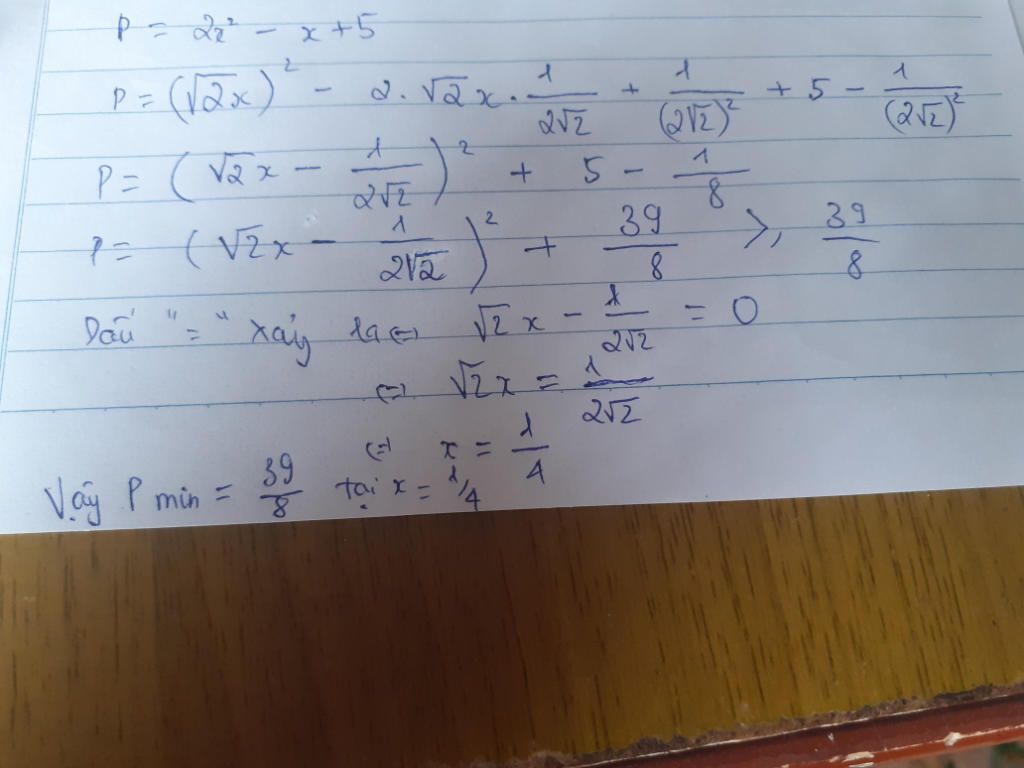 P = 2x² - x + 5
P = (√2x)² - 2.√2x.1/2√2 + 1/(2√2)² + 5 - 1/(2√2)²
P = (√2x - 1/2√2)² + 5 - 1/8
P = (√2x - 1/2√2)² + 39/8 ≥ 39/8
Dấu "=" xảy ra ⇔ √2x - 1/2√2 = 0
⇔ √2x = 1/2√2
⇔ x = 1/4
Vậy P min = 39/8 tại x = 1/4